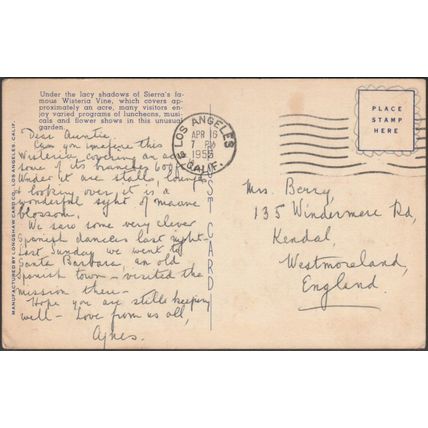 Under the lacy shadows of Sierra's fa-
mous Wisteria Vine, which covers ap-
proximately an acre, many visitors en-
joy varied programs of luncheons, musi-
cals and flower shows in this unusual
garden.
Dear Auntie
Can you imagine this
Wisteria covering an acre
some of its branches 600ft
Under it are stalls,
& looking over it, is a
wonderful sight of mauve
blossom.
We saw some very clever
Spanish dancers last night-
last Sunday we went to
Santa Barbara, an old
Spanish town - visited the
mission there -
Hope you are still keeping
well - Love from us all,
Agnes.
MANUFACTURED BY LONGSHAW CARD CO., LOS ANGELES, CALIF.
POST CARD
LOS ANGELES
APR 16
7 PM
CALIF.
PLACE
STAMP
HERE
Mrs. Berry,
135 Windermere Rd,
Kendal,
Westmoreland,
England.